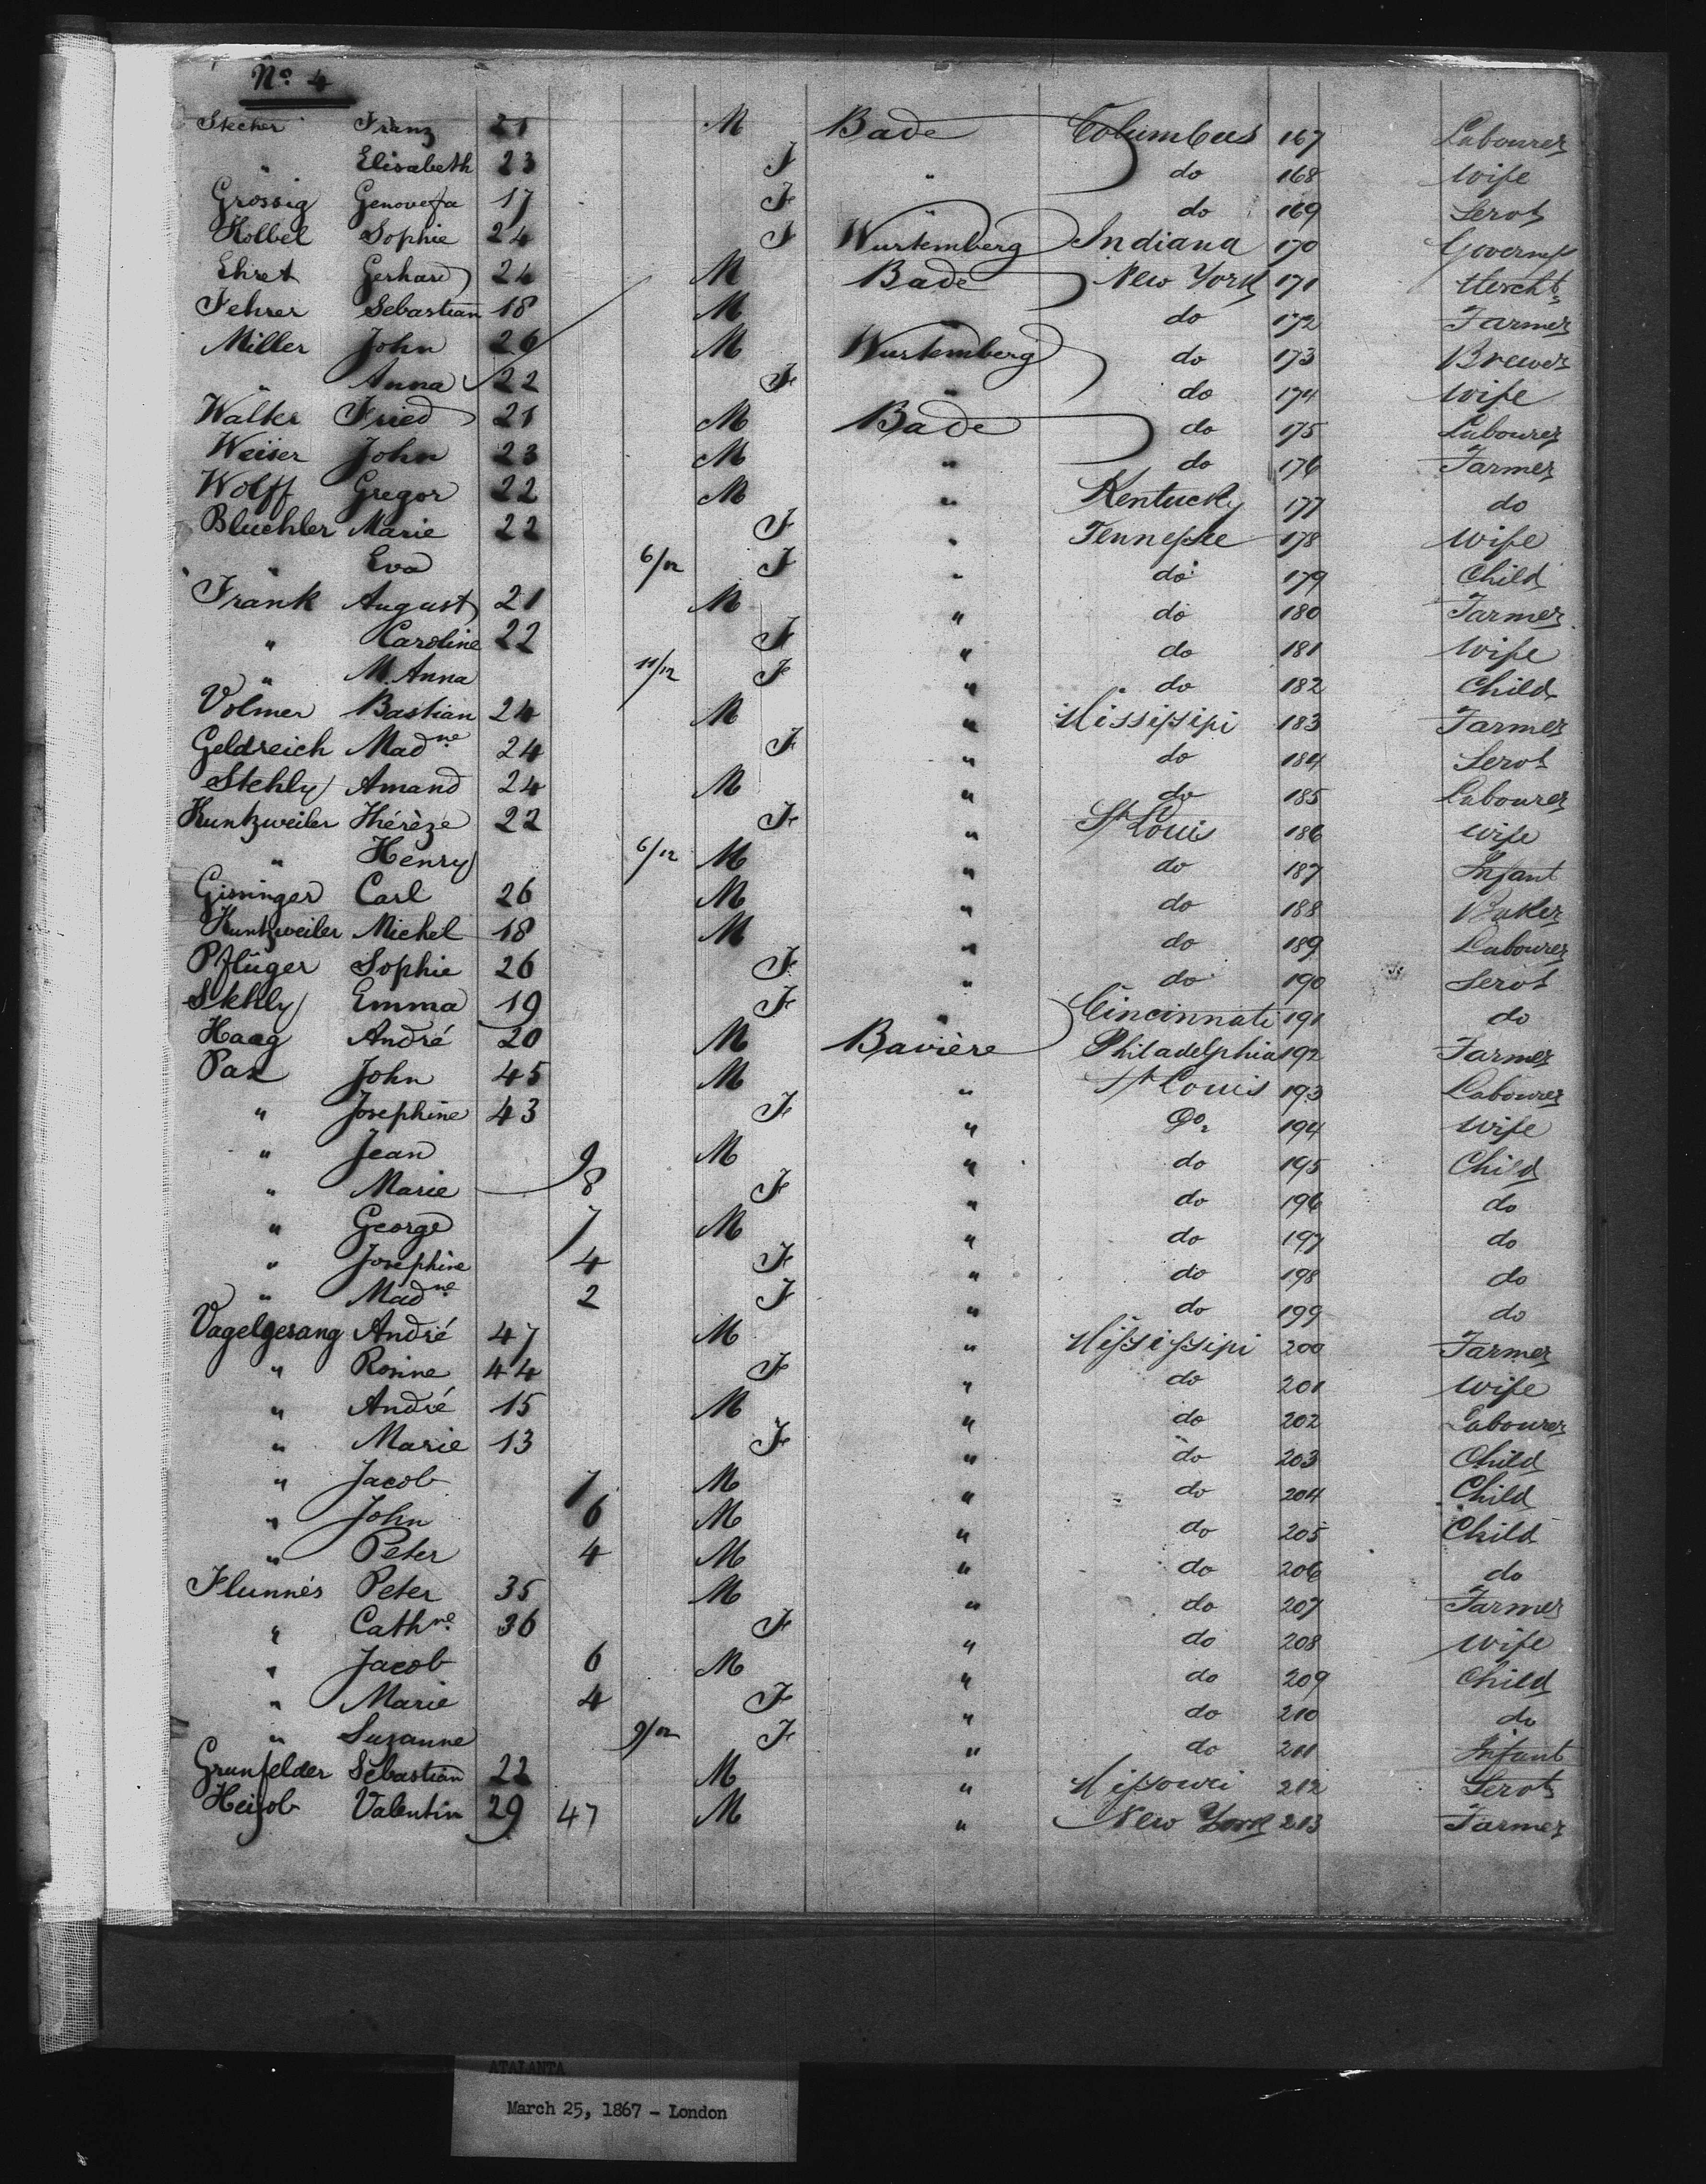 No. 4
Stecher Franz 21 M Bade Columbus 167 Labourer
" Elisabeth 23 F " do 168 Wife
Grossig Genovefa 17 F " do 169 Servt
Kolbel Sophie 24 F Wurtemberg Indiana 170 Governess
Ehret Gerhard 24 M Bade New York 171 Mercht
Fehrer Sebastian 18 M " do 172 Farmer
Miller John 26 M Wurtemberg do 173 Brewer
" Anna 22 F " do 174 Wife
Walter Fried 21 M Bade do 175 Labourer
Weiser John 23 M " do 176 Farmer
Wolff Gregor 22 M " Kentucky 177 do
Bluehler Marie 22 F " Tennessee 178 Wife
" Eva 6/12 F " do 179 Child
Frank August 21 M " do 180 Farmer
" Caroline 22 F " do 181 Wife
" M. Anna 11/12 F " do 182 Child
Volmer Bastian 24 M " Missisipi 183 Farmer
Geldreich Madne 24 F " do 184 Servt
Stehly Amand 24 M " do 185 Labourer
Kuntzweiler Thérèze 22 F " St Louis 186 Wife
" Henry 6/12 M " do 187 Infant
Gissinger Carl 26 M " do 188 Baker
Kuntzweiler Michel 18 M " do 189 Labourer
Pflüger Sophie 26 F " do 190 Servt
Stehly Emma 19 F " Cincinnati 191 do
Haag André 20 M Bavière Philadelphia 192 Farmer
Pax John 45 M " St Louis 193 Labourer
" Josephine 43 F " Do 194 Wife
" Jean 9 M " do 195 Child
" Marie 8 F " do 196 do
" George 7 M " do 197 do
" Josephine 4 F " do 198 do
" Madne 2 F " do 199 do
Vagelgesang André 47 M " Missisipi 200 Farmer
" Rosine 44 F " do 201 Wife
" André 15 M " do 202 Labourer
" Marie 13 F " do 203 Child
" Jacob 7 M " do 204 Child
" John 6 M " do 205 Child
" Peter 4 M " do 206 do
Flunnés Peter 35 M " do 207 Farmer
" Cathne 36 F " do 208 Wife
" Jacob 6 M " do 209 Child
" Marie 4 F " do 210 do
" Suzanne 9/12 F " do 211 Infant
Grunfelder Sebastian 22 M " Missouri 212 Servt
Heisob Valentin 29 47 M " New York 213 Farmer
ATALANTA
March 25, 1867 - London